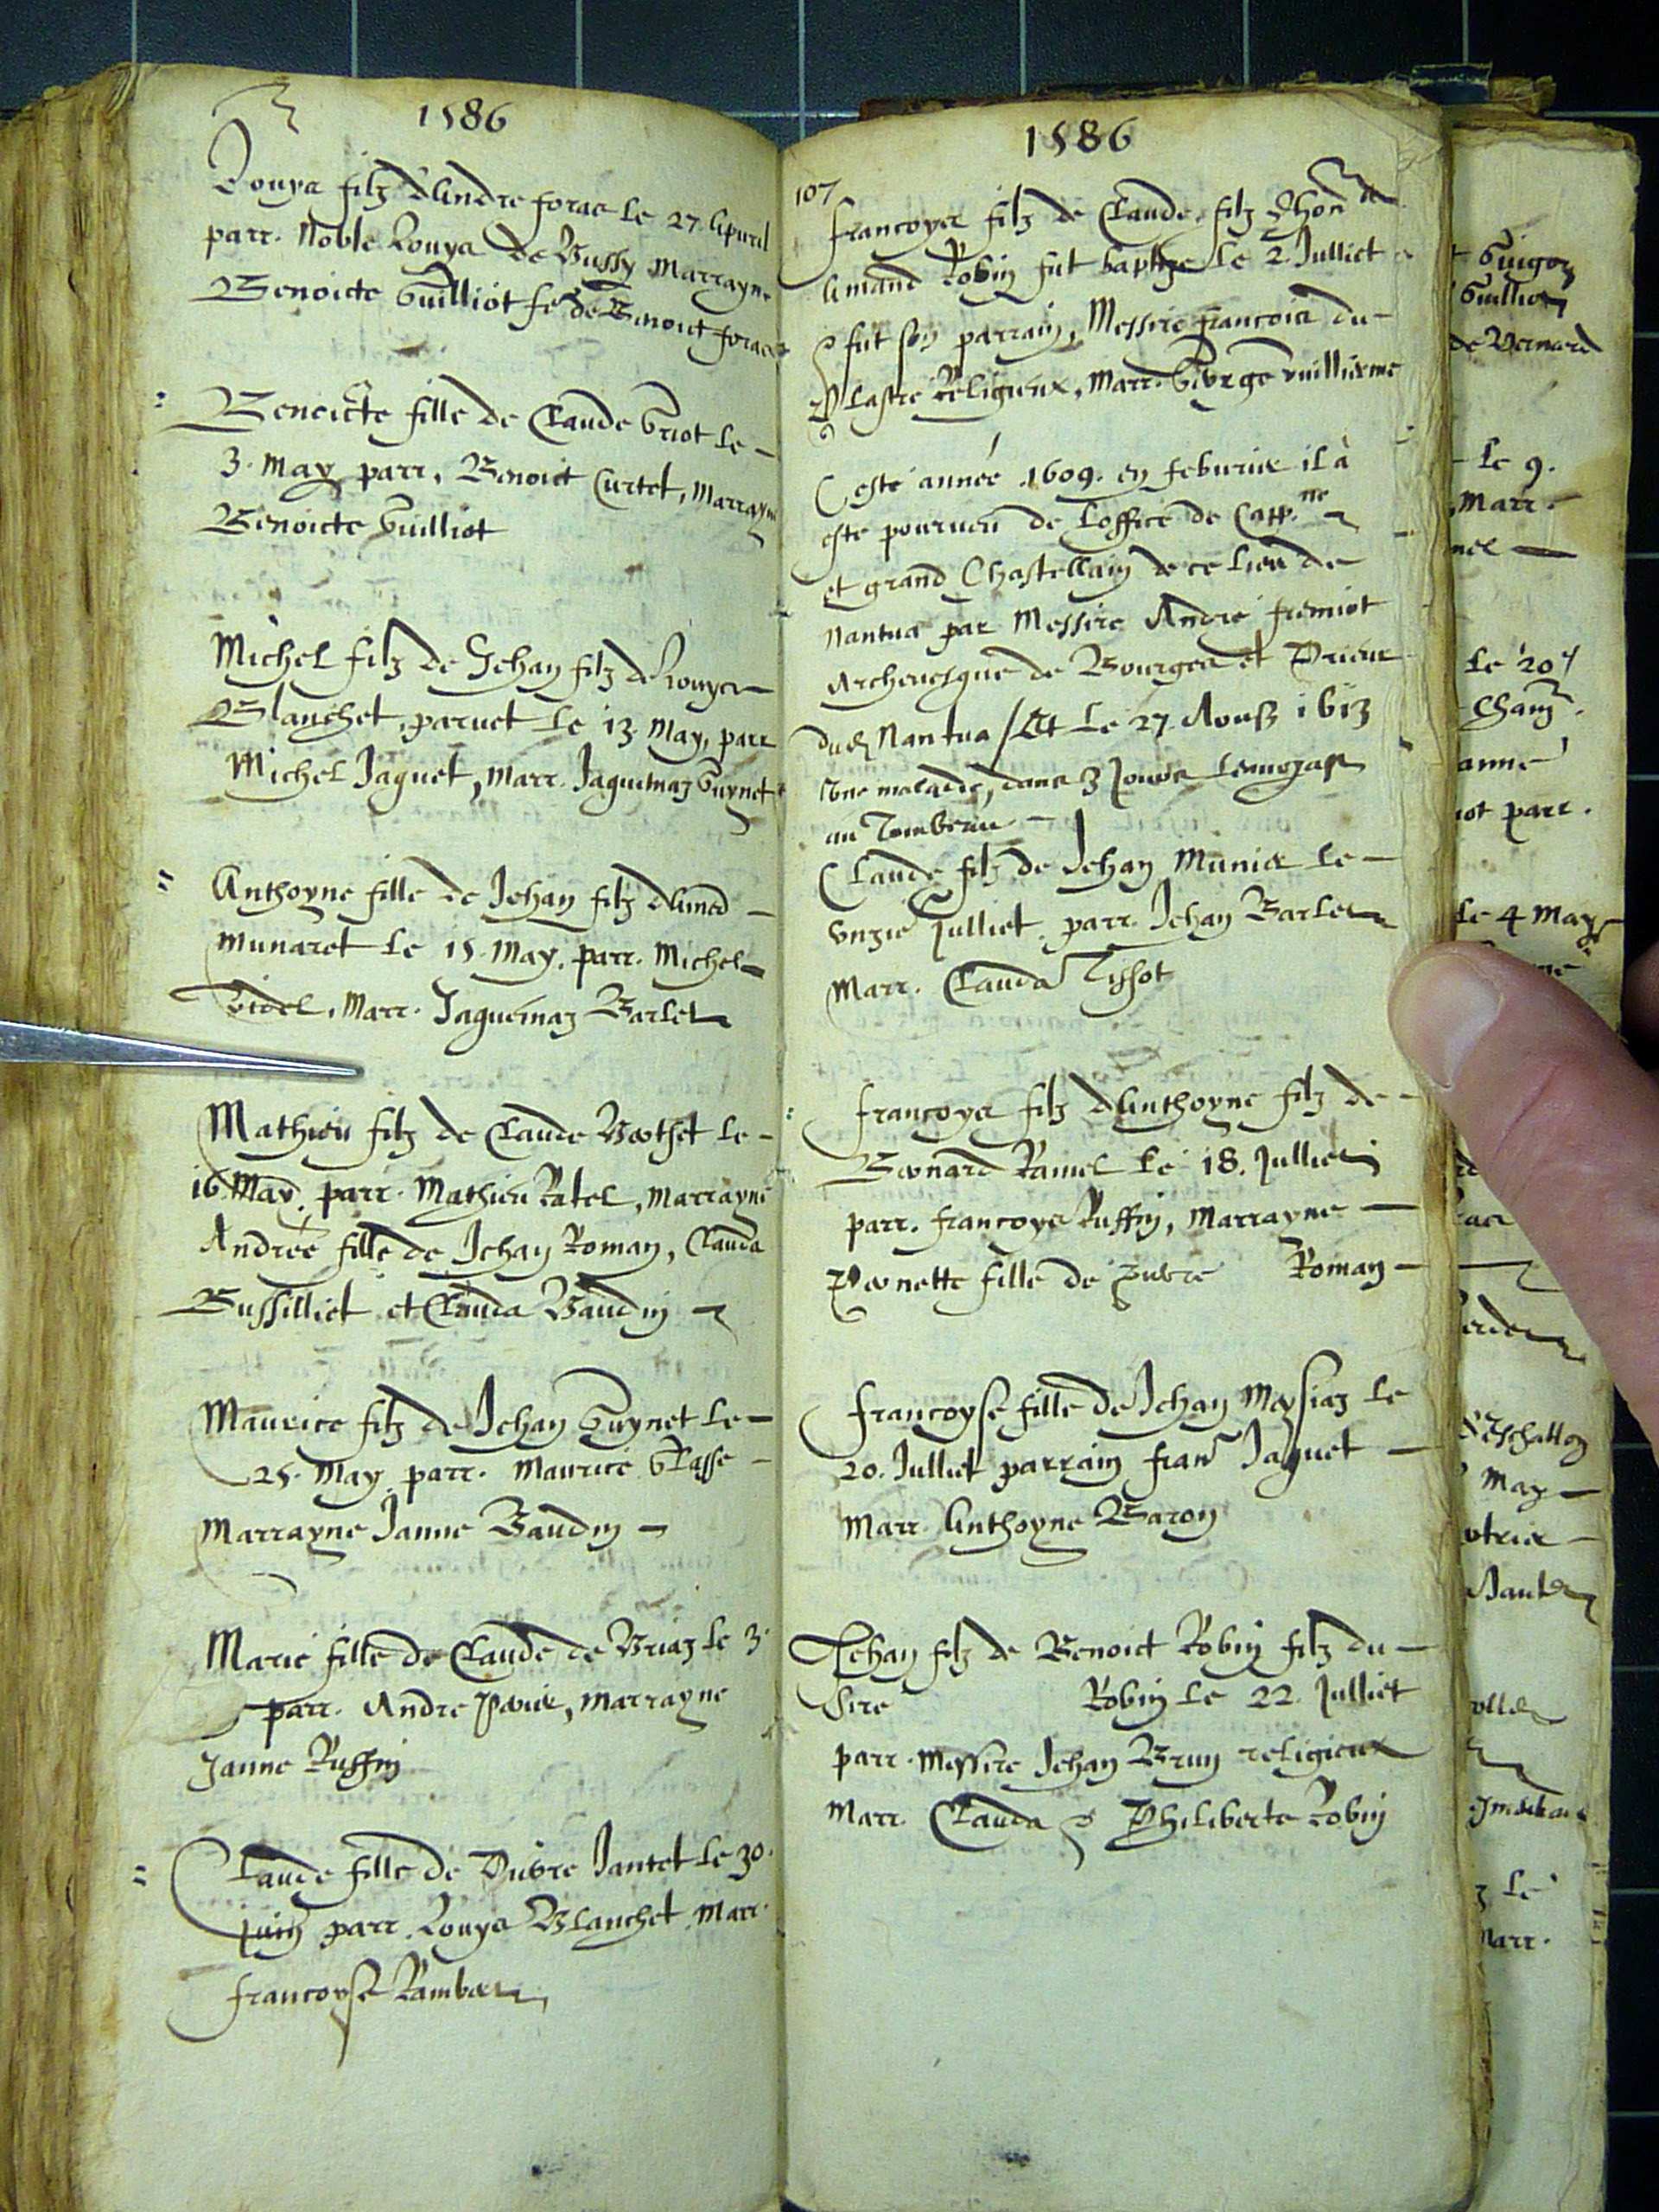 1586
Louys filz d'Andre forae le 27. Apuril
parr. Noble Louys de Bussy Marrayne
Benoicte Guilliot fe de Benoit forae
Benoicte fille de Claude Griot le
3. May parr, Benoict Curtet, Marrayne
Benoicte Guilliot
Michel filz de Jehan filz de Louys
Blanchet paruet le 13. May, parr
Michel Jaquet, Marr. Jaquemaz Guynet
Anthoyne fille de Jehan filz d'Amed
Munaret le 15. May. parr. Michel
Videl, Marr. Jaquemaz Barlet
Mathieu filz de Claude le
16. May. parr. Mathieu Ratel, Marrayne
Andree fille de Jehan Roman, Clauda
Bussilliet et Clauda Baudin
Maurice filz de Jehan Guynet le
25. May. parr. Maurice Grasse
Marrayne Janne Baudin
Marie fille de Claude de Briaz le 3.
parr. Andre , Marrayne
Janne Ruffin
Claude fille de Piere Jantet le 30.
juin parr. Louys Blanchet Marr.
francoyse Rambert
1586
107
francoys filz de Claude, filz d'hon
Amand Robin fut baptize le 2. Julliet
fut son parrain, Messire francois du
Plastre Religieux, Marr. George vuillierme
Ceste année .1609. en feburier il à
este pourueu de Loffice de Capp.ne
et grand Chastellain de ce Lieu de
Nantua par Messire André fremiot
Archeuesque de Bourges et Prieur
dud Nantua / Et Le 27. Aoust 1613
Une maladie, dans 3 Jours Lenuoya
au Tombeau
Claude filz de Jehan Munier le
unzie Julliet. parr. Jehan Barlet
Marr. Clauda Tissot
francoys filz d'Anthoyne filz de
Bernard Ramel le 18. Julliet
parr. francoys Ruffin, Marrayne
Pernette fille de Piere Roman
francoyse fille de Jehan Meysiaz le
20. Julliet parrain fran Jaquet
Marr. Anthoyne Baron
Jehan filz de Benoict Robin filz du
Sire Robin le 22. Julliet
parr. Messire Jehan Brun religieux
Marr. Clauda & Philiberte Robin
Guigon
Guillion
de Bernard
le 9.
Marr.
le 20
anne
parr.
le 4 May
May
le
Marr.